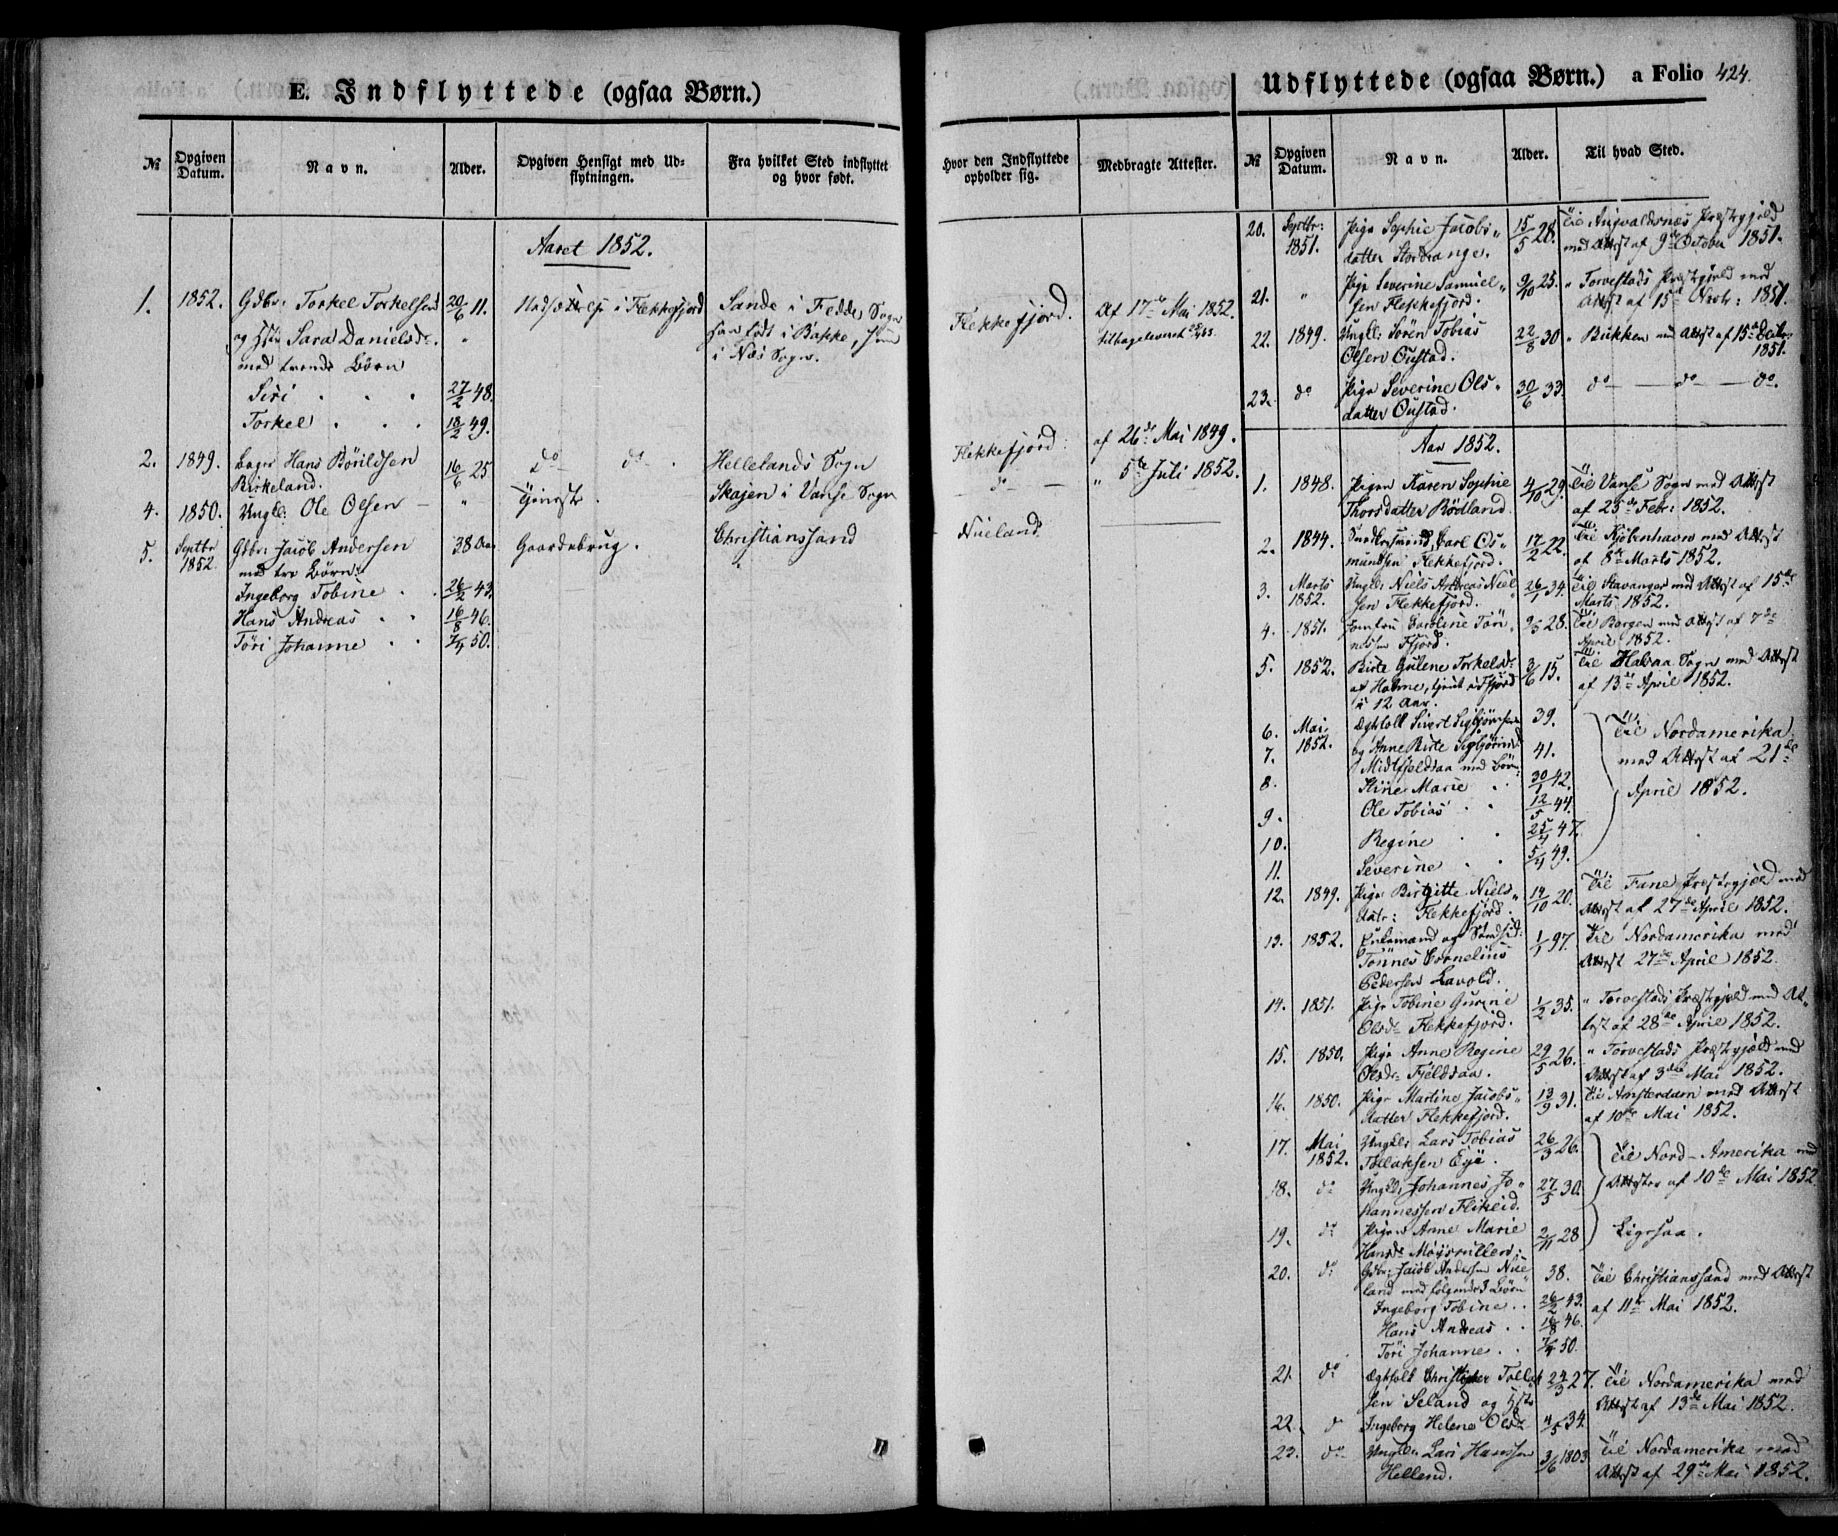 E. Indflyttede (ogsaa Børn.)
№
Opgiven Datum.
Navn.
Alder.
Opgiven Hensigt med Udflytningen.
Fra hvilket Sted indflyttet og hvor født.
Hvor den Indflyttede opholder sig.
Medbragte Attester.
Aaret 1852.
1. 1852. Gdbr: Torkel Torkelsen 20/6 11. i Flekkefjord Sande i Fedde Sogn
Flekkefjord. Af 17de Mai 1852.
og Sara Danielsd. " født i Bakke,
med tvende Børn i Næs Sogn.
Siri . . . 27/2 48.
Torkel . . . 18/2 49.
2. 1849. Hans Börildsen 16/6 25 do do . Hellelands Sogn
Flekkefjord. af 26de Mai 1849.
Birkeland.
4. 1850. Ungk: Ole Olsen — " Tjeneste. Skajen i Vanse Sogn
do — — " 5te Juli 1852.
5. Septbr 1852 Gdbr: Jacob Andersen 38 Aar Gaardsbrug. Christianssand
Nueland.
med tre Børn:
Ingeborg Tobine . . 26/2 43.
Hans Andreas . . 16/8 46.
Töri Johanne . . 7/4 50.
Udflyttede (ogsaa Børn.) a Folio 424.
№
Opgiven Datum.
Navn.
Alder.
Til hvad Sted.
20. Septbr: 1851. Pige Sophie Jacobs- 15/5 28. Til Augvaldsnæs Præstegjeld
datter Stordrange. med Attest af 9de October 1851.
21. " Pige Severine Samuel- 9/10 25. " Torvestads Præstegjeld med
sen Flekkefjord. Attest af 15de Novbr: 1851.
22. 1849. Ungk: Sören Tobias 22/8 30 " Bukken med Attest af 15de Decbr
Olsen Oustad. 1851.
23. do Pige Severine Ols- 30/6 33. do — do — do.
datter Oustad.
Aar 1852.
1. 1848. Pigen Karen Sophie 4/10 29. Til Vanse Sogn med Attest
Thorsdatter Rödland. af 25de Febr: 1852.
2. 1844. Carl Os- 17/2 22. Til Kjöbenhavn med Attest
mundsen Flekkefjord. af 8de Marts 1852.
3. Marts 1852. Ungk: Niels Andreas Niel- 26/1 34. Til Stavanger med Attest af 15de
sen Flekkefjord. Marts 1852.
4. 1851. Jomfru Caroline Tön- 9/5 28. Til Bergen med Attest af 7de
Ffjord. April 1852.
5. 1852. Birte Gulene Torkelsd. 3/6 15. Til Halsaa Sogn med Attest
af Holme, tjent i Ffjord af 13de April 1852.
i 12 Aar.
6. Mai 1852. Ægtfolk Sivert Sigbjørnsen 39. Til Nordamerika
7. og Anne Birte Sigbjörnsd. 41. med Attest af 21de
Midtfjeldsaa med Børn: April 1852.
8. Stine Marie . . 30/1 42.
9. Ole Tobias . . 12/5 44.
10. Regine . . 25/4 47.
11. Severine . . 5/4 49.
12. 1849. Pige Birgitte Niels- 14/10 20. Til Fane Præstegjeld med
datr: Flekkefjord. Attest af 27de April 1852.
13. 1852. Enkemand og 1/1 97. Til Nordamerika med
Tönnes Cornelius Attest 27de April 1852.
Pedersen Lavold.
14. 1851. Pige Tobine Gurine 1/2 35. " Torvestads Præstegjeld med At-
Olsd. Flekkefjord. test af 28de April 1852.
15. 1850. Pige Anne Regine 29/5 26. " Torvestads Præstegjeld med
Olsdr Fjeldsaa. Attest af 3die Mai 1852.
16. 1850. Pige Martine Jacobs- 13/9 31. Til Amsterdam med Attest
datter Flekkefjord. af 10de Mai 1852.
17. Mai 1852. Ungk: Lars Tobias 26/3 26. Til Nord-Amerika med
Tollaksen Eye. Attester af 10de Mai 1852
18. do Ungk: Johannes Jo- 27/5 30.
hannessen Flikeid.
19. do Pigen Anne Marie 2/11 28 Ligesaa.
Hansd.
20. do Gdbr: Jacob Andersen Nue- 38. Til Christianssand med Attest
land med følgende 3 Børn af 11te Mai 1852.
Ingeborg Tobine . . 26/2 43.
Hans Andreas . . 16/8 46.
Töri Johanne . . 7/4 50.
21. do Ægtfolk Christopher Tollef- 24/3 27. Til Nordamerika med
sen Seland og Attest af 13de Mai 1852.
22. do Ingeborg Helene Olsdr 4/5 34.
23. do Ungk: Lars Hansen 3/6 1803 Til Nordamerika med
Helland. Attest af 29de Mai 1852.